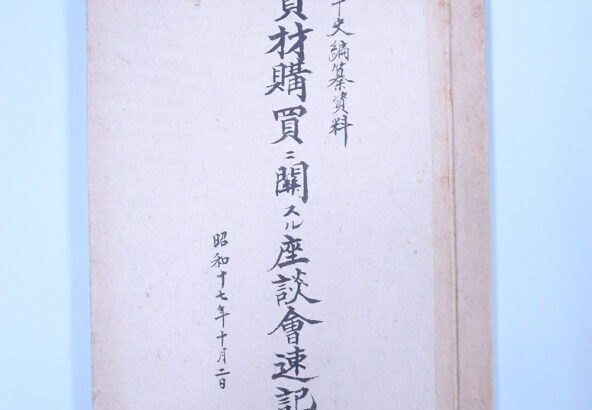 年史編纂資料
資材購買ニ關スル座談會速記
昭和十七年十月二日